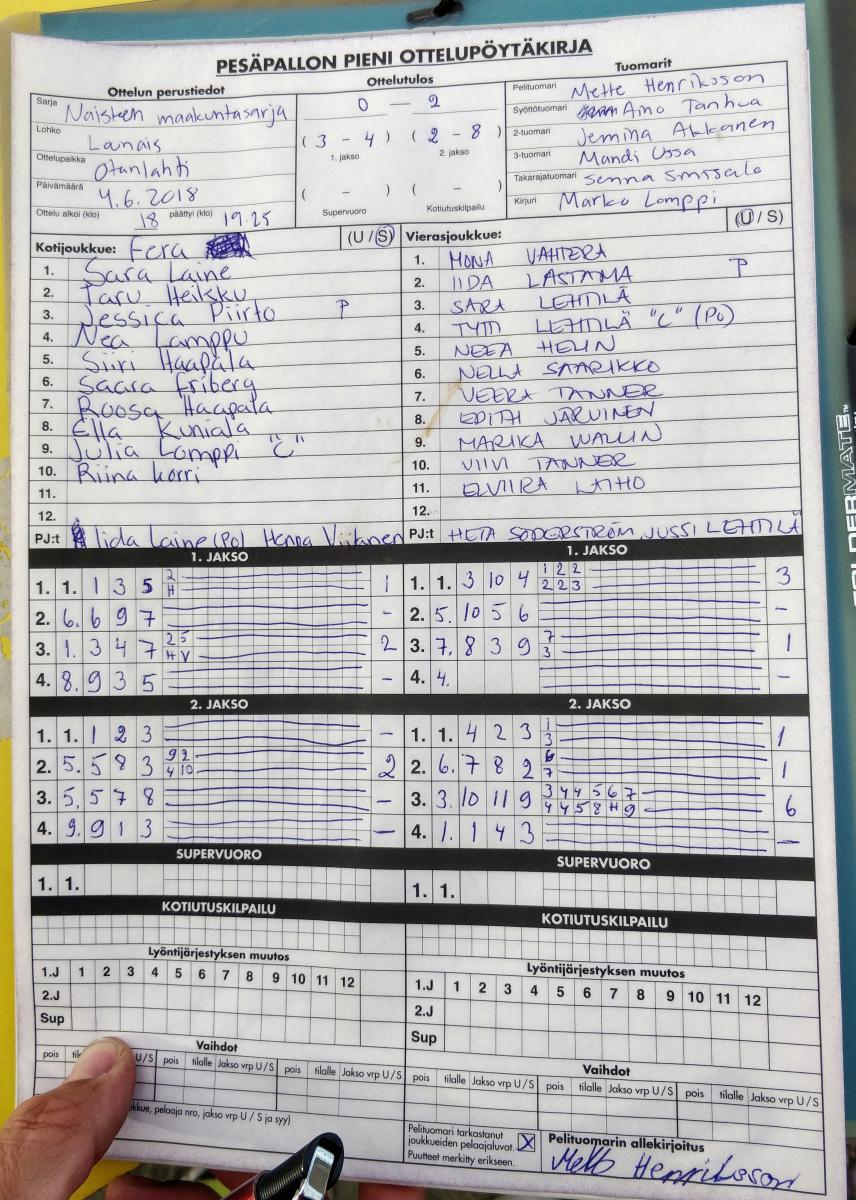 PESÄPALLON PIENI OTTELUPÖYTÄKIRJA
Ottelun perustiedot
Sarja Naisten maakuntasarja
Lohko Länais
Ottelupaikka Otanlahti
Päivämäärä 4.6.2018
Ottelu alkoi (klo) 18 päättyi (klo) 19.25
Ottelutulos
0 – 2
(3 - 4) (2 - 8)
1. jakso 2. jakso
( - ) ( - )
Supervuoro Kotiutuskilpailu
Tuomarit
Pelituomari Mette Henriksson
Syöttötuomari Aino Tanhua
2-tuomari Jemina
3-tuomari Mandi Ussa
Takarajatuomari Senna
Kirjuri Marko Lomppi
Kotijoukkue: Fera (U / S)
1. Sara Laine
2. Taru Heikku
3. Jessica Piirto P
4. Nea Lamppu
5. Siiri Haapala
6. Saara Friberg
7. Roosa Haapala
8. Ella Kuniala
9. Julia Lomppi "C"
10. Riina Korri
11.
12.
PJ:t Iida Laine (PO) Henna Viitanen
Vierasjoukkue: (U / S)
1. MONA VAHTERA
2. IIDA LASTAMA P
3. SARA LEHTILÄ
4. TYTTI LEHTILÄ "C" (PO)
5. NEEA HELIN
6. NELLA SAARIKKO
7. VEERA TANNER
8. EDITH JÄRVINEN
9. MARIKA WALLIN
10. VIIVI TANNER
11. ELVIIRA LAIHO
12.
PJ:t HETA SÖDERSTRÖM, JUSSI LEHTILÄ
1. JAKSO
1. 1. 1 3 5 2 1
H
2. 6. 6 9 7 -
3. 1. 3 4 7 2 5 2
H V
4. 8. 9 3 5 -
1. JAKSO
1. 1. 3 10 4 1 2 2 3
2 2 3
2. 5. 10 5 6 -
3. 7. 8 3 9 7 1
3
4. 4. -
2. JAKSO
1. 1. 1 2 3 -
2. 5. 5 8 3 9 2 2
4 10
3. 5. 5 7 8 -
4. 9. 9 1 3 -
2. JAKSO
1. 1. 4 2 3 1 1
3
2. 6. 7 8 2 6 1
7
3. 3. 10 11 9 3 4 4 5 6 7 6
4 4 5 8 H 9
4. 1. 1 4 3 -
SUPERVUORO
1. 1.
SUPERVUORO
1. 1.
KOTIUTUSKILPAILU
KOTIUTUSKILPAILU
Lyöntijärjestyksen muutos
1.J 1 2 3 4 5 6 7 8 9 10 11 12
2.J
Sup
Lyöntijärjestyksen muutos
1.J 1 2 3 4 5 6 7 8 9 10 11 12
2.J
Sup
Vaihdot
pois U/S pois tilalle Jakso vrp U/S pois tilalle Jakso vrp U/S
Vaihdot
pois tilalle Jakso vrp U/S pois tilalle Jakso vrp U/S
pelaaja nro, jakso vrp U / S ja syy)
Pelituomari tarkastanut
joukkueiden pelaajaluvat. X
Puutteet merkitty erikseen.
Pelituomarin allekirjoitus
Mette Henriksson